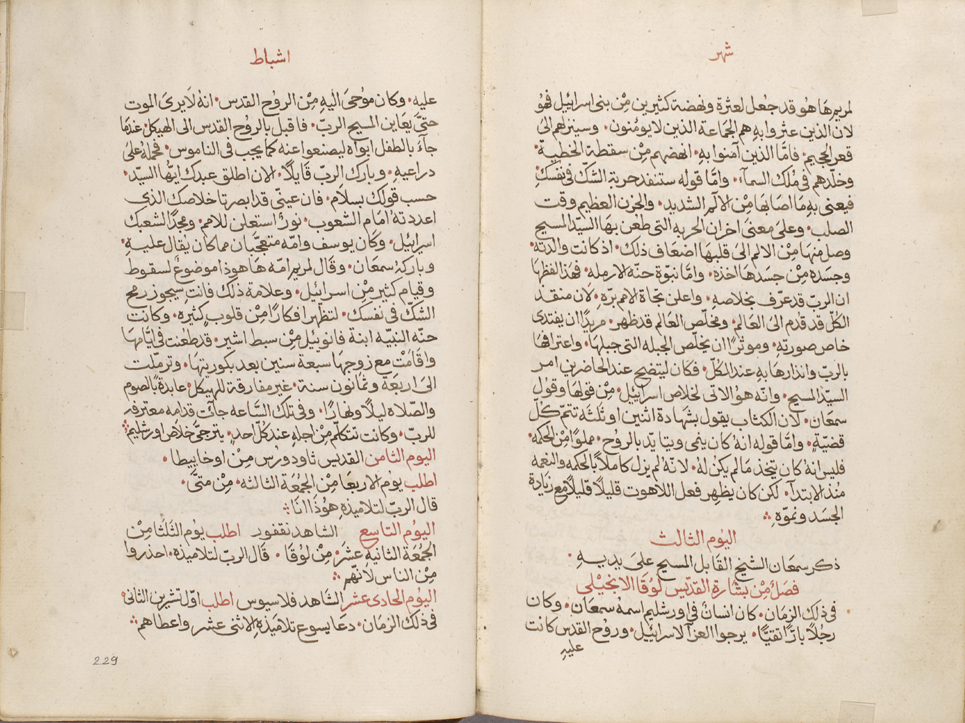 شهر
لمريم ها هو قد جعل لعثرة ونهضة كثيرين من بنى اسرائيل فهو
لان الذين عثروا به هم الجماعة الذين لا يومنون٠ وسينزلهم الى
قعر الجحيم٠ فامّا الذين آمنوا به٠ انهضهم من سقطة الخطية٠
وخلّدهم فى ملك السمآء٠ وامّا قوله ستنفد حربة الشكّ فى نفسكِ
فيعنى به ما اصابها من الالم الشديد٠ والحزن العظيم وقت
الصلب٠ وعلى معنى اخر ان الحربه التى طعن بها السيّد المسيح
وصل منها من الالم الى قلبها اضعاف ذلك٠ اذ كانت والدته٠
وجسده من جسدها اخذه٠ وامّا نبوّة حنّه الارمله٠ فهذا لفظها
ان الربّ قد عرّف بخلاصه٠ واعلن نجاة الامم برّه٠ لان منقذ
الكلّ قد قدم الى العالم٠ ومخلّص العالم قد ظهر٠ مريدًا ان يفتدى
خاص صورته٠ وموثرًا ان يخلّص الجبله التى جبلها٠ واعترافها
بالربّ وانذارها به عند الكلّ٠ فكان ليتضح عند الحاضرين امر
السيّد المسيح٠ وانّه هو الاتى لخلاص اسرائيل٠ من قولها وقول
سمعان٠ لان الكتاب يقول بشهادة اثنين او ثلثه تتمّ كلّ
قضيّة٠ وامّا قوله انه كان ينمى ويتايّد بالروح٠ مملوًا من الحكمه٠
فليس انه كان يتخذ ما لم يكن له٠ لانه لم يزل كاملاً بالحكمه والنعمه
منذ الابتدآ٠ لكن كان يظهر فعل اللاهوت قليلاً قليلاً مع زيادة
الجسد ونموّه܀
اليوم الثالث
ذكر سمعان الشيخ القابل المسيح على يديه٠
فصل من بشارة القدّيس لوقا الانجيلى
فى ذلك الزمان٠ كان انسان فى اورشليم اسمه سمعان٠ وكان
رجلاً بارًا تقيًّا٠ يرجوا العزآ لاسرائيل٠ وروح القدس كانت
عليه
اشباط
عليه٠ وكان موُحىَ اليه من الروح القدس٠ انه لا يرى الموت
حتىّ يعاين المسيح الربّ٠ فاقبل بالروح القدس الى الهيكل عندما
جاءَ بالطفل ابواه ليصنعوا عنه كما يجب فى الناموس٠ فحمله على
دراعيه٠ وبارك الربّ قايلاً٠ الان اطلق عبدك ايّها السيّد٠
حسب قولك بسلام٠ فان عينىّ قد ابصرتا خلاصك الذى
اعددته امام الشعوب٠ نورًا استعلن للامم٠ ومجدًا لشعبك
اسرائيل٠ وكان يوسف وامّه متعجّبان مما كان يقال عليه٠
وباركه سمعان٠ وقال لمريم امّه ها هوذا موضوعٌ لسقوط
وقيام كثير من اسرائيل٠ وعلامة ذلك فانت سيجوز رمح
الشك فى نفسك٠ لتظهر افكارًا من قلوبٍ كثيره٠ وكانت
حنّه النبيّه ابنة فانوئيل من سبط اشير٠ قد طعنت فى ايّامها
واقامت مع زوجها سبعة سنين بعد بكوريتها٠ وترملت
الى اربعة وثمانون سنة٠ غير مفارقة للهيكل٠ عابدةً بالصوم
والصلاه ليلاً ونهارًا٠ وفى تلك السّاعه جاتّ قدامه معترفه
للربّ٠ وكانت تتكلّم من اجله عند كلّ احدٍ٠ يترجىّ خلاص اورشليم܀
اليوم الثامن القديس ثاودورس من اوخاييطا٠
اطلب يوم الاربعا من الجمُعة الثالثه٠ من متىَّ٠
قال الربّ لتلاميذه هوذا انا܀
اليوم التاسع الشاهد نقفور اطلب يوم الثلثا من
الجمُعة الثانيه عشر من لوقا٠ قال الربّ لتلاميذه٠ احذروا
من الناس لانّهم܀
اليوم الحادى عشر الشاهد فلاسيوس اطلب اوّل تشرين الثانى٠
فى ذلك الزمان٠ دعا يسوع تلاميذه الاثنى عشر واعطاهم܀
229